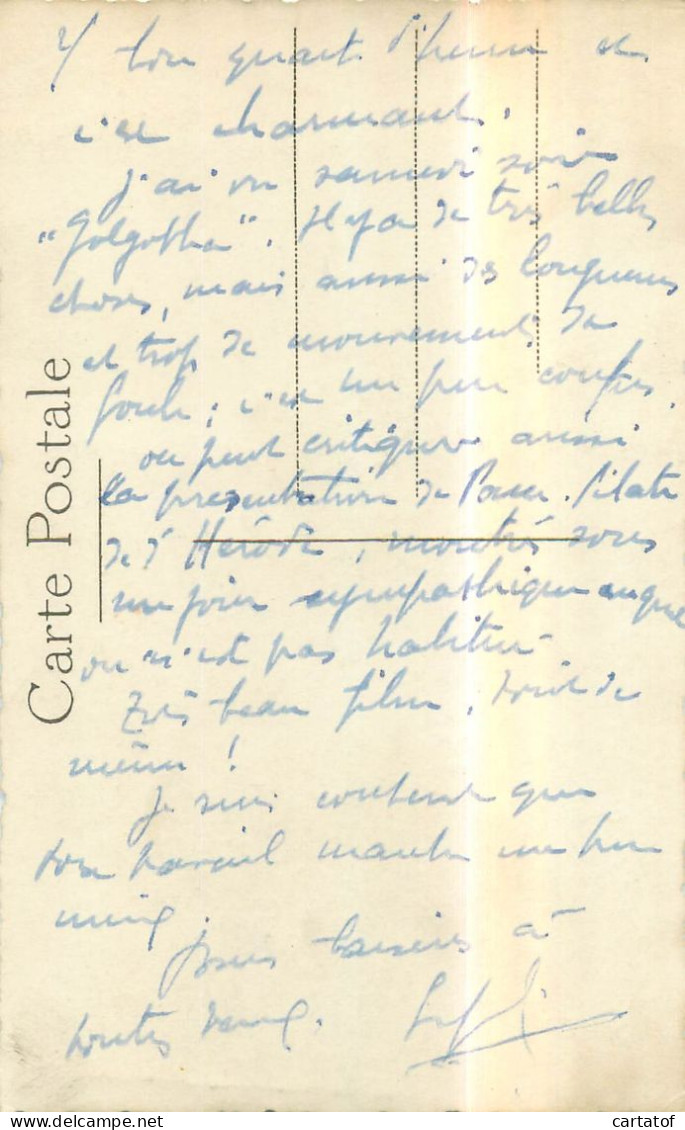 bon quart d'heure et
c'est charmant.
J'ai vu samedi soir
"Golgotha". Il y a de très belles
choses, mais aussi des longueurs
et trop de mouvements de
foule ; c'est un peu confus.
on peut critiquer aussi
la présentation de Ponce-Pilate
de d'Hérode, montrés sous
un jour sympathique auquel
on n'est pas habitué.
Très beau film, tout de
même !
Je suis contente que
ton travail marche un peu
mieux.
Bons baisers à
toutes deux.
Carte Postale
cartatof